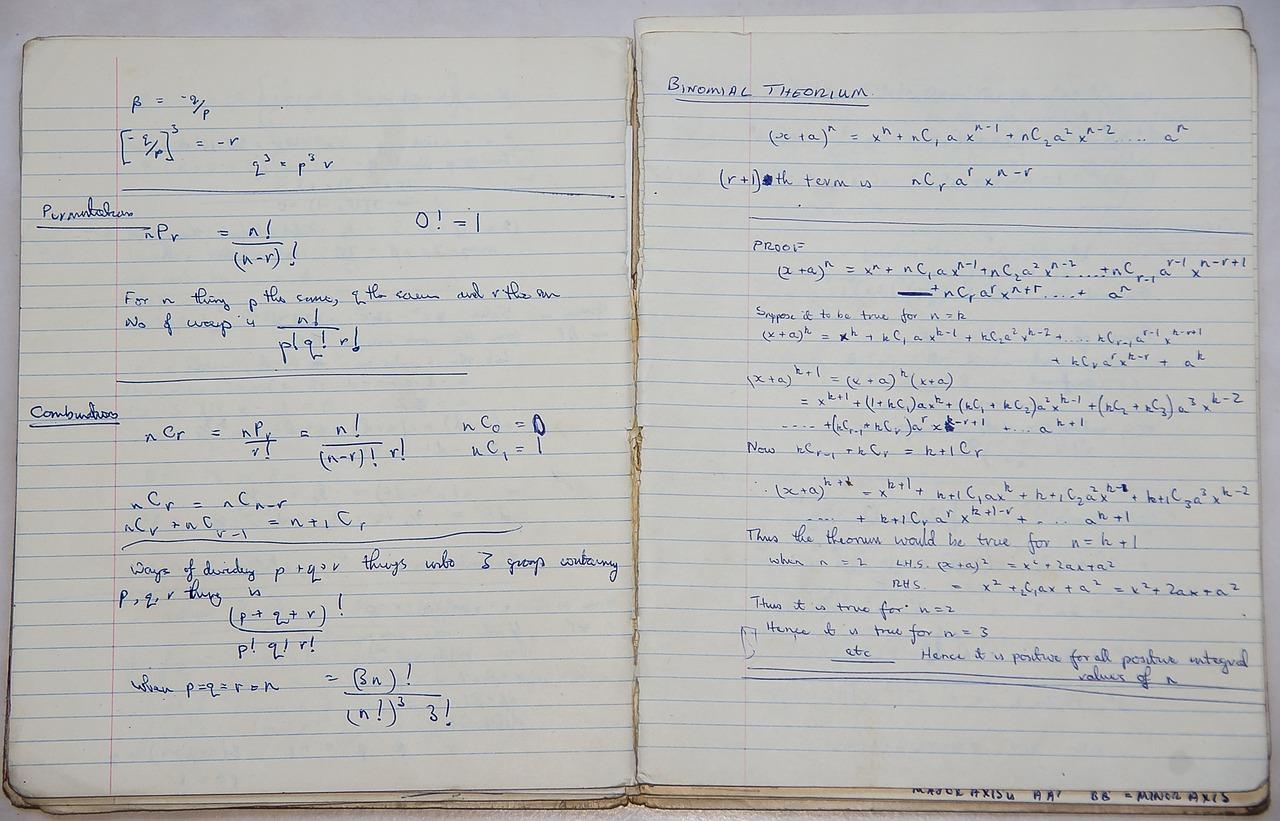 β = -q/p
[-q/p]³ = -r
q³ = p³ r
Permutations
nPr = n! / (n-r)! 0! = 1
For n things p the same, q the same and r the
No of ways is n! / p! q! r!
Combinations
nCr = nPr / r! = n! / (n-r)! r! nC₀ = 0
nC₁ = 1
nCr = nCn-r
nCr + nCr-1 = n+1Cr
Ways of dividing p+q+r things into 3 group containing
p, q, r things is
(p+q+r)! / p! q! r!
when p=q=r=n = (3n)! / (n!)³ 3!
BINOMIAL THEORIUM
(x+a)ⁿ = xⁿ + nC₁ a xⁿ⁻¹ + nC₂ a² xⁿ⁻² .... aⁿ
(r+1)th term is nCr aʳ xⁿ⁻ʳ
PROOF
(x+a)ⁿ = xⁿ + nC₁ a xⁿ⁻¹ + nC₂ a² xⁿ⁻² ..... + nCr-1 aʳ⁻¹ xⁿ⁻ʳ⁺¹
+ nCr aʳ xⁿ⁺ʳ .... + aⁿ
Suppose it to be true for n=k
(x+a)ᵏ = xᵏ + kC₁ a xᵏ⁻¹ + kC₂ a² xᵏ⁻² + ..... kCr-1 aʳ⁻¹ xᵏ⁻ʳ⁺¹
+ kCr aʳ xᵏ⁻ʳ + aᵏ
(x+a)ᵏ⁺¹ = (x+a)ᵏ (x+a)
= xᵏ⁺¹ + (1+kC₁) a xᵏ + (kC₁ + kC₂) a² xᵏ⁻¹ + (kC₂ + kC₃) a³ xᵏ⁻²
.... + (kCr-1 + kCr) aʳ xᵏ⁻ʳ⁺¹ + ... aᵏ⁺¹
Now kCr-1 + kCr = k+1Cr
∴ (x+a)ᵏ⁺¹ = xᵏ⁺¹ + k+1C₁ a xᵏ + k+1C₂ a² xᵏ⁻¹ + k+1C₃ a³ xᵏ⁻²
.... + k+1Cr aʳ xᵏ⁺¹⁻ʳ + .... aᵏ⁺¹
Thus the theorum would be true for n=k+1
when n=2 L.H.S. (x+a)² = x² + 2ax + a²
R.H.S. = x² + ₂C₁ax + a² = x² + 2ax + a²
Thus it is true for n=2
Hence it is true for n=3
etc Hence it is positive for all positive integral
values of n
MAJOR AXIS AA' BB' = MINOR AXIS